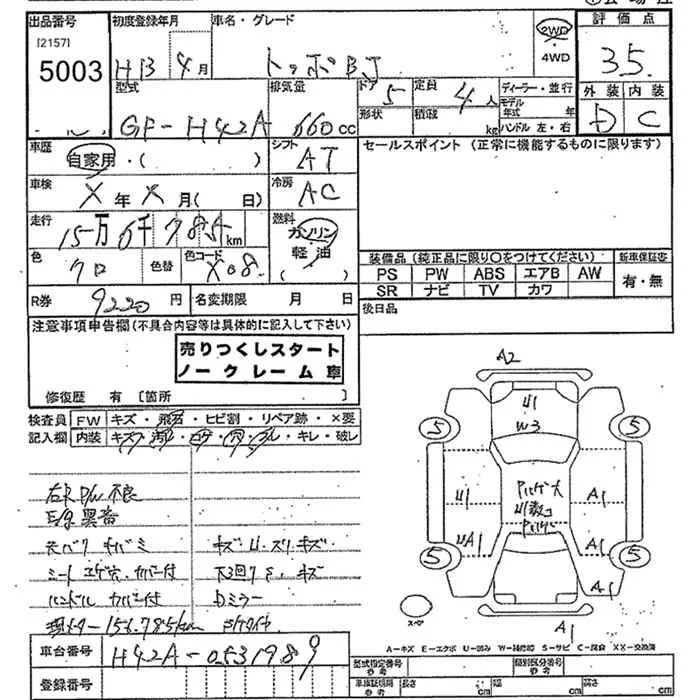 出品番号
[2157]
5003
初度登録年月
H13 年 4 月
車名・グレード
トッポBJ
2WD
・
4WD
評価点
3.5
外装 内装
D C
型式
GF-H42A
排気量
660 cc
ドア
5
形状
定員
4 人
積載
kg
ディーラー・並行
モデル
年式 年
ハンドル 左・右
車歴
自家用・( )
シフト
AT
セールスポイント (正常に機能するものに限ります)
車検
X 年 X 月( 日)
冷房
AC
走行
15万 6千 785 km
燃料
ガソリン
軽油
( )
色
クロ
色替
色コード
X08
装備品(純正品に限り○をつけてください)
新車保証書
PS PW ABS エアB AW
SR ナビ TV カワ
有・無
R券 9220 円
名変期限 月 日
後日品
注意事項申告欄(不具合内容等は具体的に記入して下さい)
売りつくしスタート
ノークレーム車
修復歴 有 [箇所 ]
検査員
記入欄
FW キズ・飛石・ヒビ割・リペア跡・×要
内装 キズ・汚レ・コゲ・穴・スレ・キレ・破レ
右R P/W 不良
E/g 異音
キズ・U・スリキズ
シート コゲ穴・カバー付
下回り S・キズ
ハンドル カバー付
Dミラー
156,785km
A2
U1
W3
5
5
U1
A1
UA1
A1
5
5
A1
A1
スペア
A-キズ E-エクボ U-凹み W-補修跡 S-サビ C-腐食 XX-交換済
車台番号
H42A-0531989
登録番号
型式指定番号
参考
類別区分番号
参考
車検証積用
参考
長さ cm
幅 cm
高さ cm